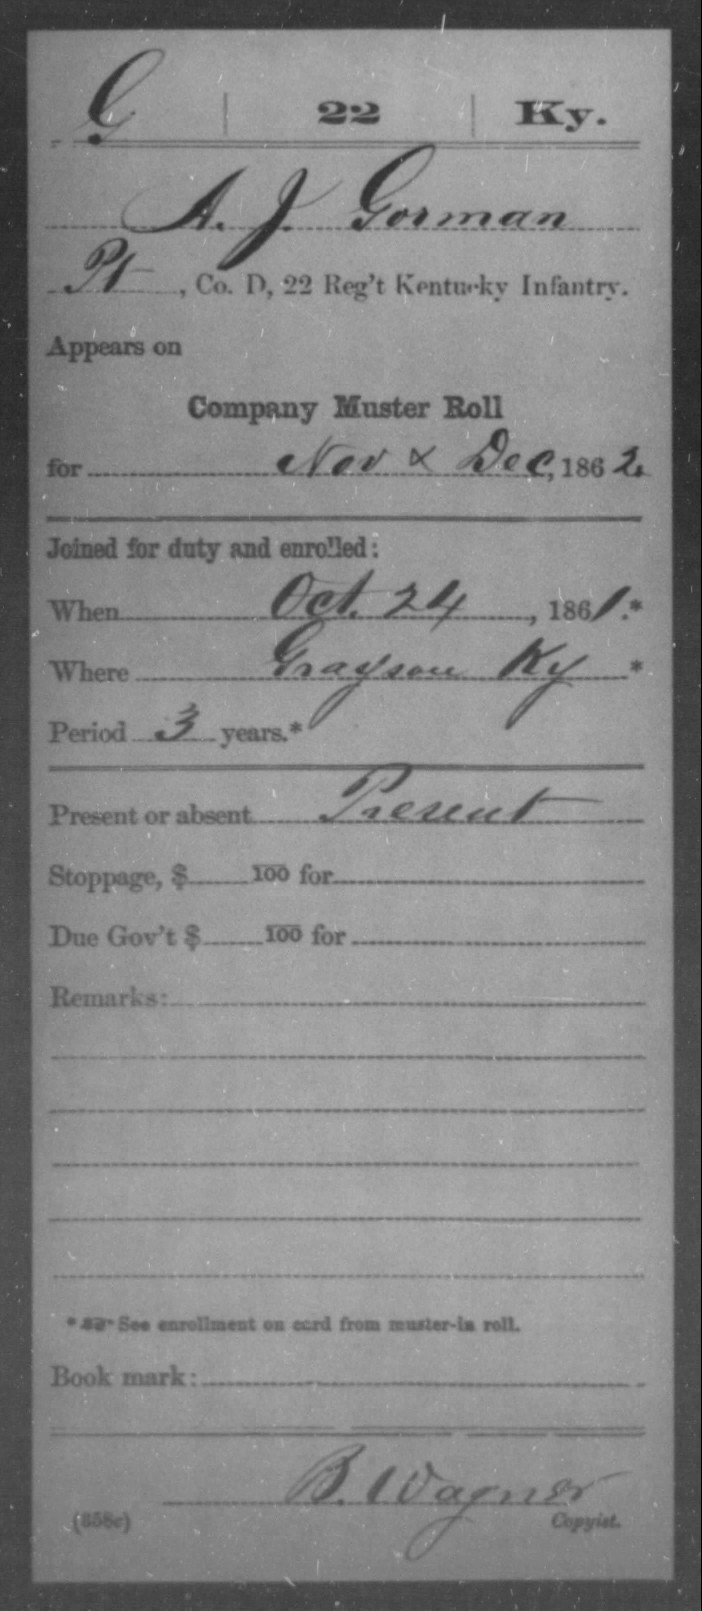 G | 22 | Ky.
A. J. Gorman
Pt, Co. D, 22 Reg't Kentucky Infantry.
Appears on
Company Muster Roll
for Nov & Dec, 1862.
Joined for duty and enrolled:
When Oct. 24, 1861.*
Where Grayson Ky *
Period 3 years.*
Present or absent Present
Stoppage, $ 100 for
Due Gov't $ 100 for
Remarks:
* See enrollment on card from muster-in roll.
Book mark:
B. Wagner
(358c) Copyist.